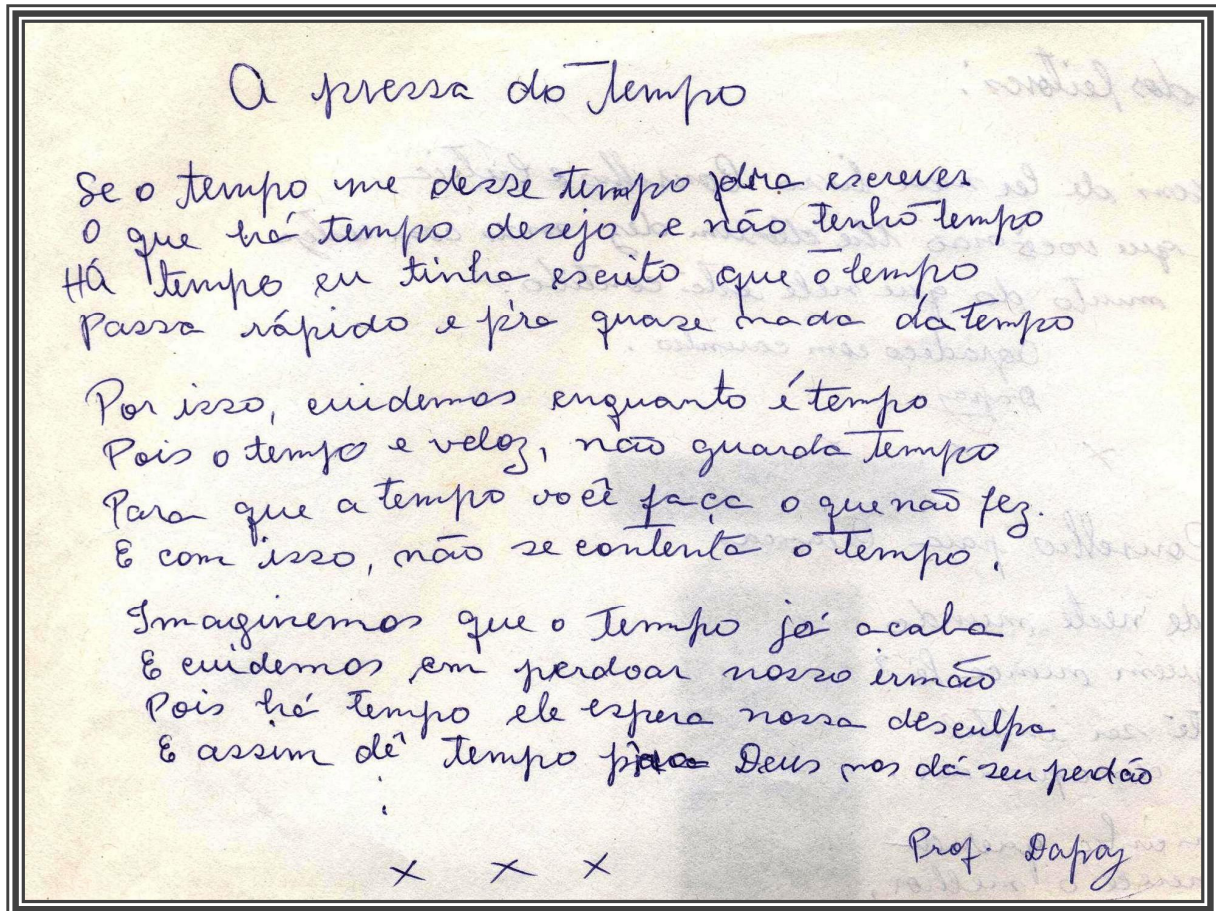 A pressa do Tempo
Se o tempo me desse tempo pra escrever
O que há tempo desejo e não tenho tempo
HÁ tempo eu tinha escrito que o tempo
Passa rápido e pra quase nada dá tempo
Por isso, cuidemos enquanto é tempo
Pois o tempo e veloz, não guarda tempo
Para que a tempo você faça o que não fez.
E com isso, não se contenta o tempo.
Imaginemos que o tempo já acaba
E cuidemos em perdoar nosso irmão
Pois há tempo ele espera nossa desculpa
E assim dê tempo pra Deus nos dá seu perdão
x x x
Prof. Dapaz